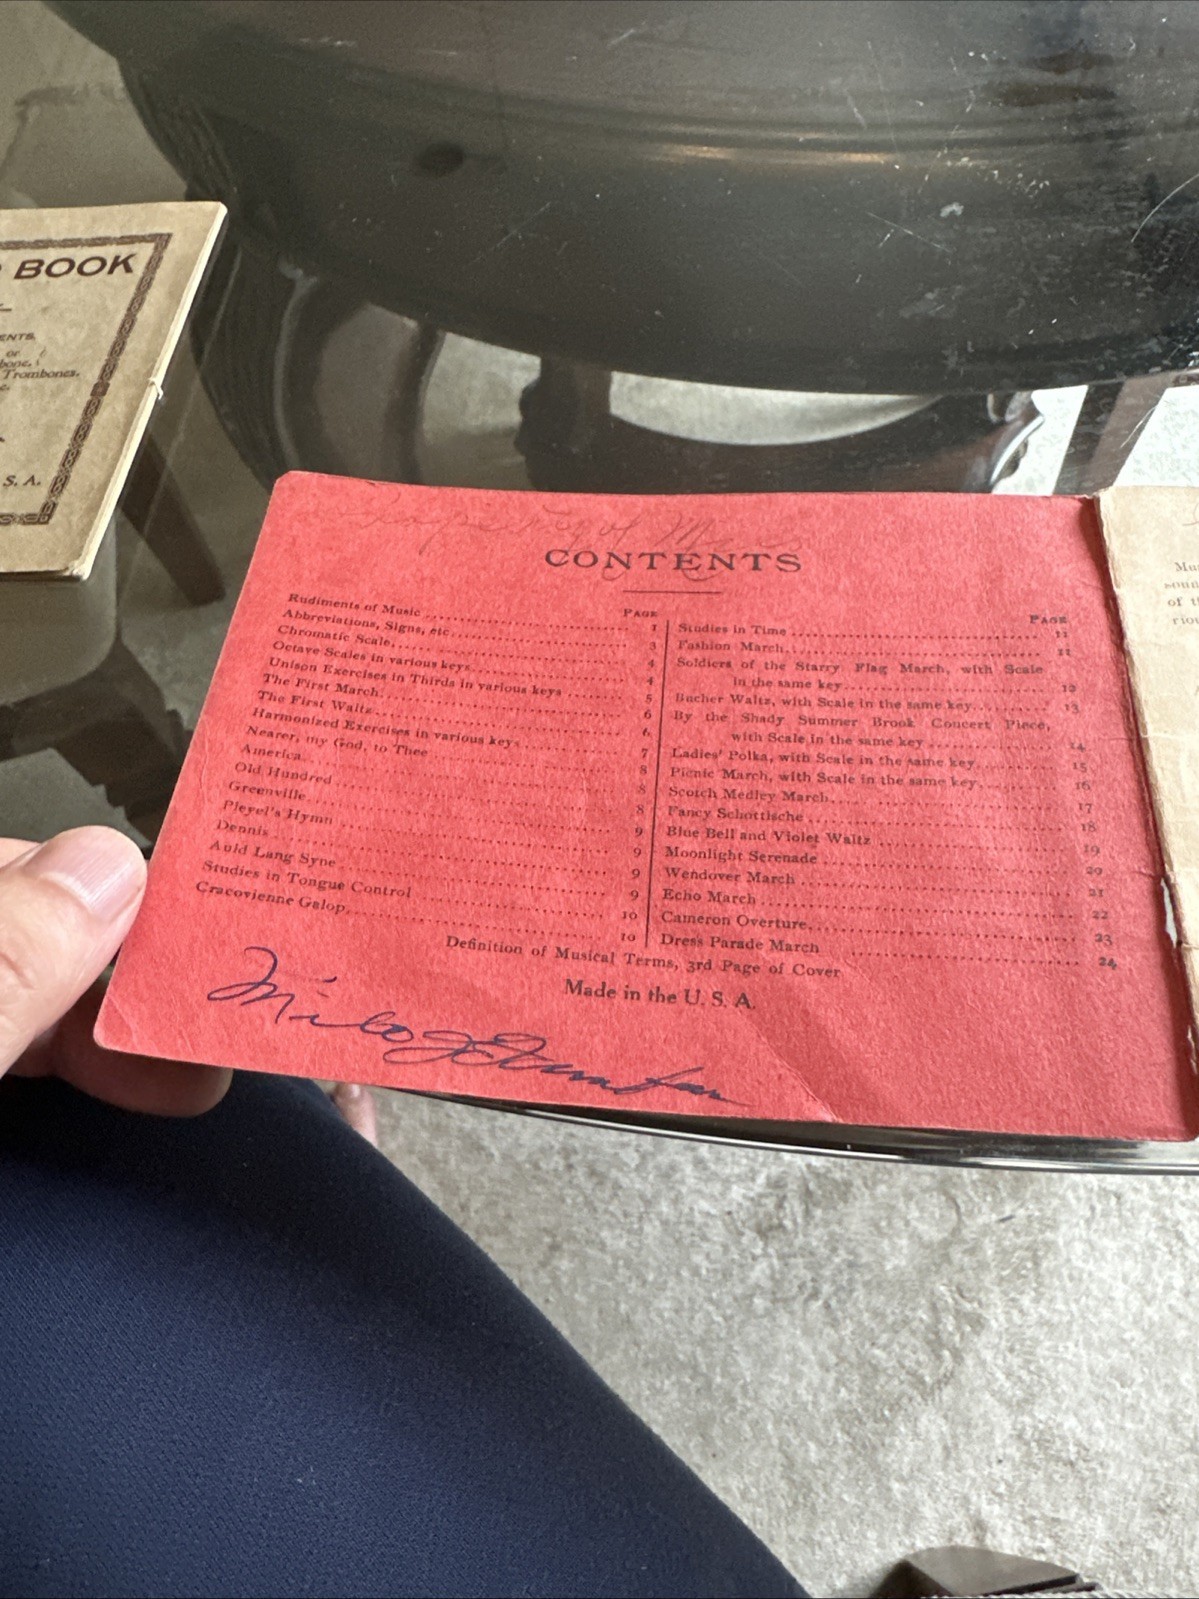 BOOK
or
Trombones.
S. A.
of
CONTENTS
PAGE
Rudiments of Music 1
Abbreviations, Signs, etc. 3
Chromatic Scale 4
Octave Scales in various keys 4
Unison Exercises in Thirds in various keys 5
The First March 6
The First Waltz 6
Harmonized Exercises in various keys 7
Nearer, my God, to Thee 8
America 8
Old Hundred 8
Greenville 9
Pleyel's Hymn 9
Dennis 9
Auld Lang Syne 9
Studies in Tongue Control 10
Cracovienne Galop 10
PAGE
Studies in Time 11
Fashion March 11
Soldiers of the Starry Flag March, with Scale
in the same key 12
Bucher Waltz, with Scale in the same key 13
By the Shady Summer Brook Concert Piece,
with Scale in the same key 14
Ladies' Polka, with Scale in the same key 15
Picnic March, with Scale in the same key 16
Scotch Medley March 17
Fancy Schottische 18
Blue Bell and Violet Waltz 19
Moonlight Serenade 20
Wendover March 21
Echo March 22
Cameron Overture 23
Dress Parade March 24
Definition of Musical Terms, 3rd Page of Cover
Made in the U. S. A.
Milo